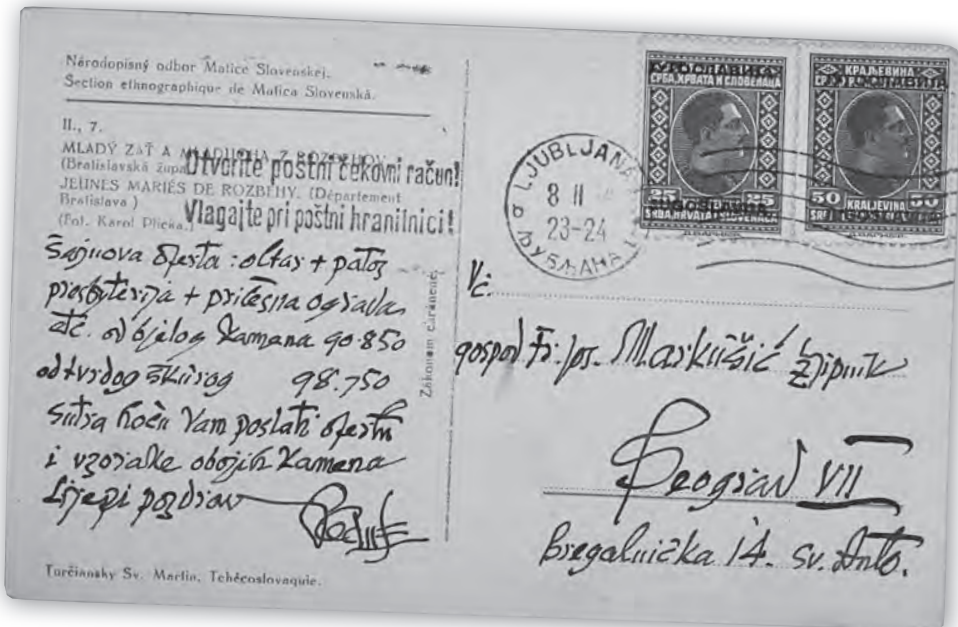 Národopisný odbor Matice Slovenskej.
Section ethnographique de Matica Slovenská.
II., 7.
MLADÝ ZAŤ A MLADUCHA Z ROZBEHOV
(Bratislavská župa)
JEUNES MARIÉS DE ROZBEHY. (Département
Bratislava)
(Fot. Karol Plicka.)
Otvorite poštni čekovni račun!
Vlagajte pri poštni hranilnici!
Šajnova oferta: oltar + patos
prosbyterija + pričesna ograda
etc. od bjelog kamena 90.850
od tvrdog škurog 98.750
Sutra hoću Vam poslati ofertu
i vzorake obojih kamena
Lijepi pozdrav
Turčiansky Sv. Martin, Tchécoslovaquie.
Zákonom chránené.
СРБА, ХРВАТА И СЛОВЕНАЦА
25 25
SRBA, HRVATA I SLOVENACA
КРАЉЕВИНА
50 KRALJEVINA 50
LJUBLJANA
8 II
23-24
ЉУБЉАНА
Vč.
gospod Fr. Jos. Markušić župnik
Beograd VII
Bregalnička 14. sv. Anto.